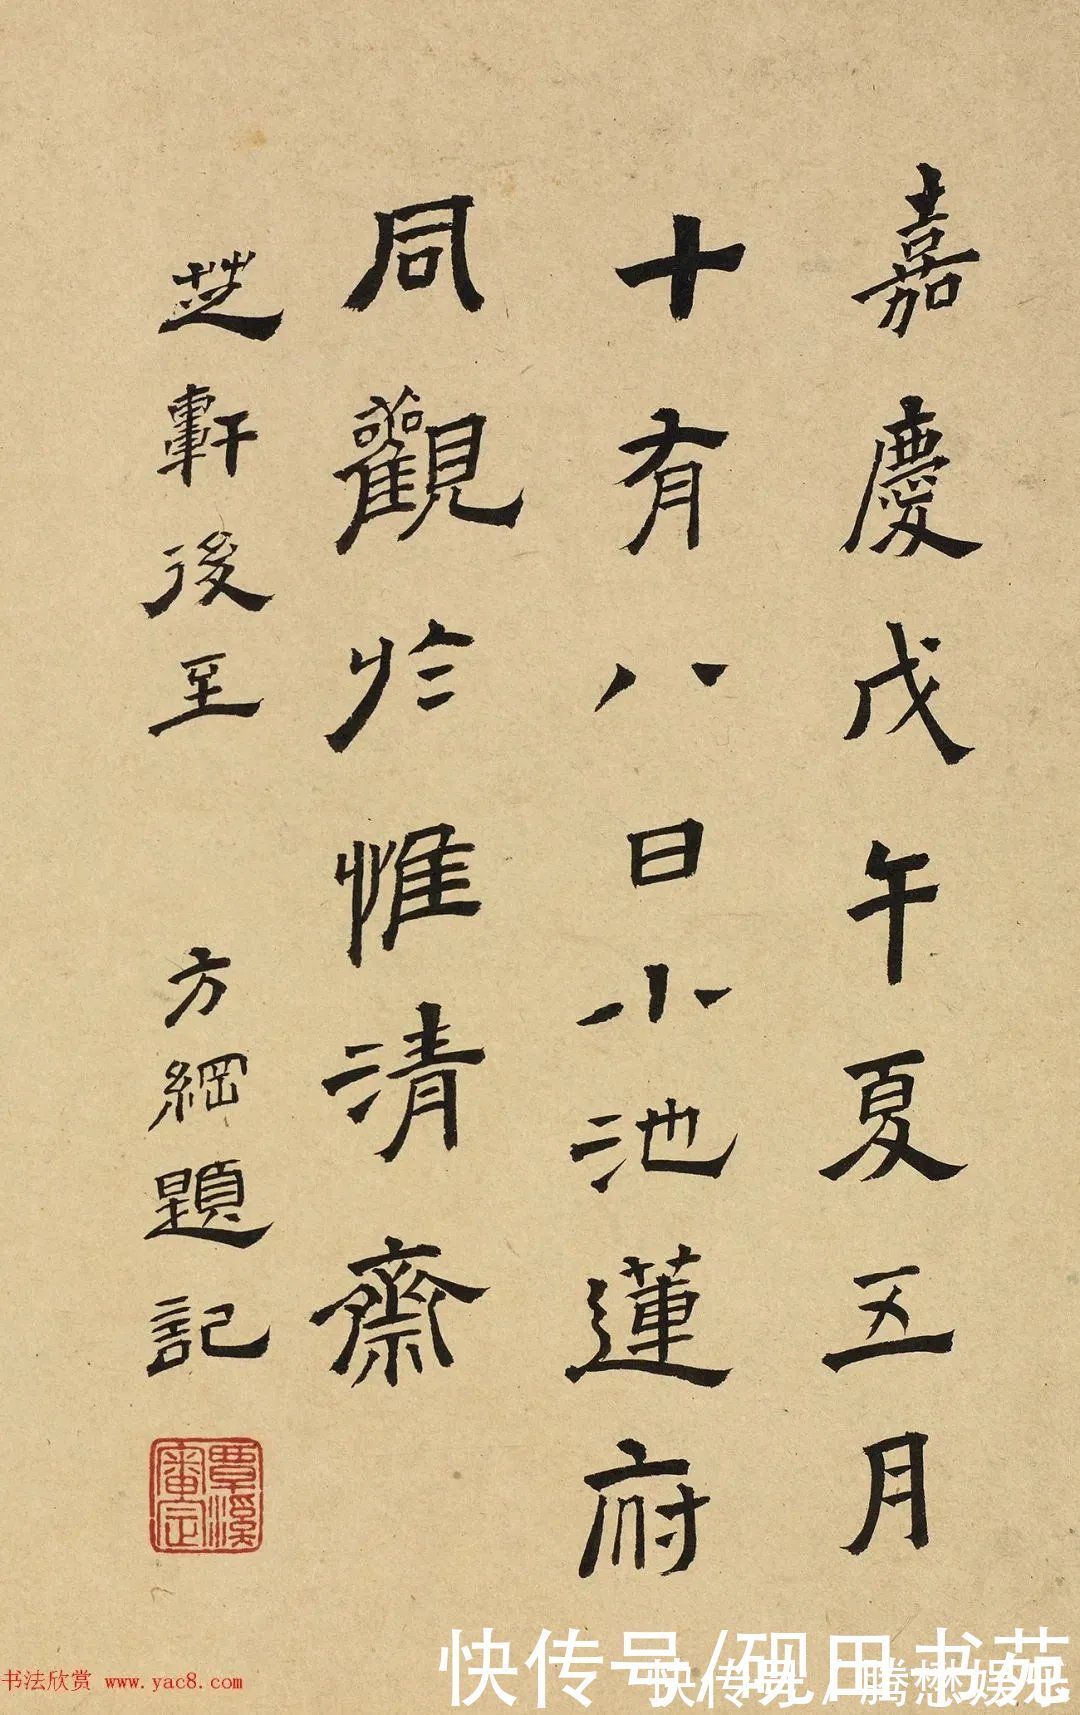 嘉慶戊午夏五月
十有八日小池蓮府
同觀於惟清齋
芝軒後至
方綱題記
覃溪
審定
书法欣赏 www.yac8.com
快传号/砚田书苑
快传号 / 腾懋娱见